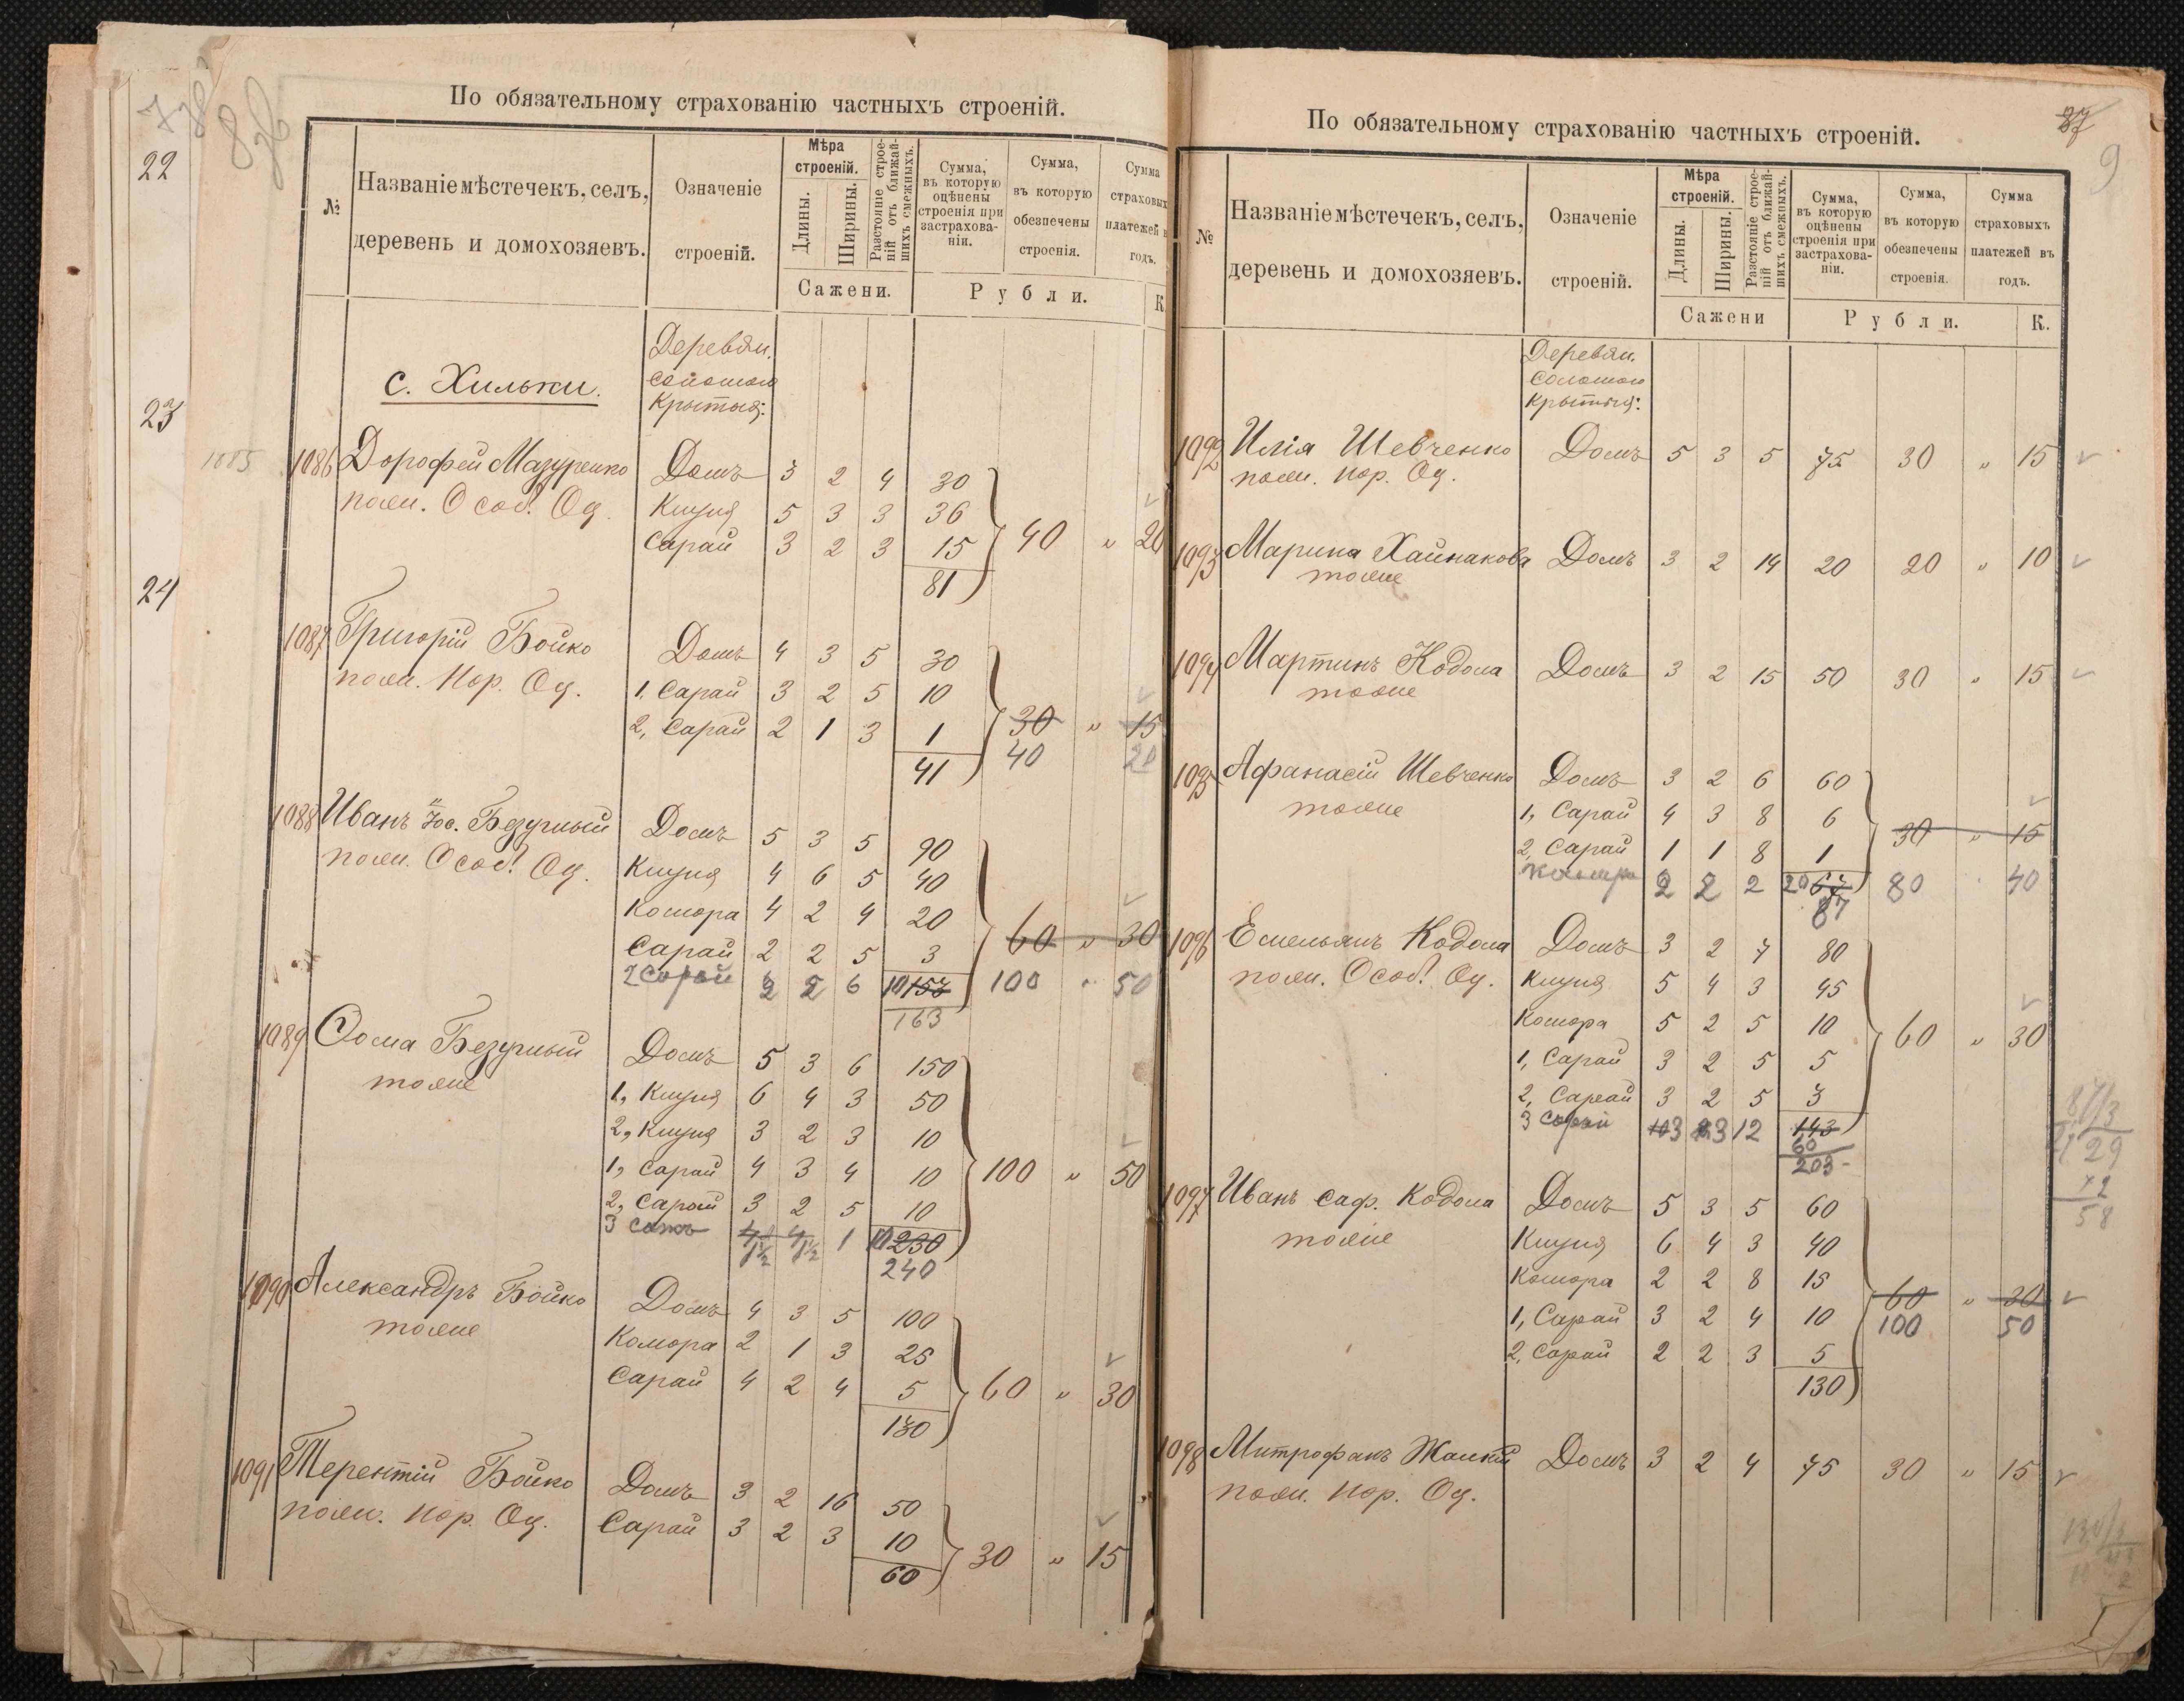 По обязательному страхованію частныхъ строеній.
№
Названіе мѣстечекъ, селъ,
деревень и домохозяевъ.
Означеніе
строеній.
Мѣра
строеній.
Длины.
Ширины.
Разстояніе строе-
ній отъ ближай-
шихъ смежныхъ.
Сажени.
Сумма,
въ которую
оцѣнены
строенія при
застрахова-
ніи.
Сумма,
въ которую
обезпечены
строенія.
Рубли.
Сумма
страховых
платежей в
годъ.
К
22
23
24
1085
с. Хильки.
Деревян.
соломою
крытыя:
1086 Дорофей Мазуренко Домъ 3 2 4 30
полн. Особ. Оц. Клуня 5 3 3 36
Сарай 3 2 3 15 40 „ 20
81
1087 Григорій Бойко Домъ 4 3 5 30
полн. Нор. Оц. 1, Сарай 3 2 5 10
2, Сарай 2 1 3 1 30 „ 15
41 40 20
1088 Иванъ Безумный Домъ 5 3 5 90
полн. Особ. Оц. Клуня 4 6 5 40
Комора 4 2 4 20
Сарай 2 2 5 3 60 „ 30
2 Сарай 2 2 6 10 153 100 „ 50
163
1089 Ѳома Безумный Домъ 5 3 6 150
тоже 1, Клуня 6 4 3 50
2, Клуня 3 2 3 10
1, Сарай 4 3 4 10 100 „ 50
2, Сарай 3 2 5 10
3 1½ 1½ 1 10 230
240
1090 Александръ Бойко Домъ 4 3 5 100
тоже Комора 2 1 3 25
Сарай 4 2 4 5 60 „ 30
130
1091 Терентій Бойко Домъ 3 2 16 50
полн. Нор. Оц. Сарай 3 2 3 10 30 „ 15
60
По обязательному страхованію частныхъ строеній.
37
9
№
Названіе мѣстечекъ, селъ,
деревень и домохозяевъ.
Означеніе
строеній.
Мѣра
строеній.
Длины.
Ширины.
Разстояніе строе-
ній отъ ближай-
шихъ смежныхъ.
Сажени
Сумма,
въ которую
оцѣнены
строенія при
застрахова-
ніи.
Сумма,
въ которую
обезпечены
строенія.
Рубли.
Сумма
страховыхъ
платежей въ
годъ.
К.
Деревян.
соломою
крытыя:
1092 Илія Шевченко Домъ 5 3 5 75 30 „ 15
полн. Нор. Оц.
1093 Марина Хайнакова Домъ 3 2 14 20 20 „ 10
тоже
1094 Мартинъ Кодола Домъ 3 2 15 50 30 „ 15
тоже
1095 Афанасій Шевченко Домъ 3 2 6 60
тоже 1, Сарай 4 3 8 6
2, Сарай 1 1 8 1 30 „ 15
Комора 2 2 2 20 67 80 40
87
1096 Емельянъ Кодола Домъ 3 2 7 80
полн. Особ. Оц. Клуня 5 4 3 45
Комора 5 2 5 10
1, Сарай 3 2 5 5 60 „ 30
2, Сарай 3 2 5 3
3 Сарай 3 3 12 143
60
203
1097 Иванъ Саф. Кодола Домъ 5 3 5 60
тоже Клуня 6 4 3 40
Комора 2 2 8 15
1, Сарай 3 2 4 10 60 „ 30
2, Сарай 2 2 3 5 100 50
130
1098 Митрофанъ Жалкій Домъ 3 2 4 75 30 „ 15
полн. Нор. Оц.
87/3
29
58